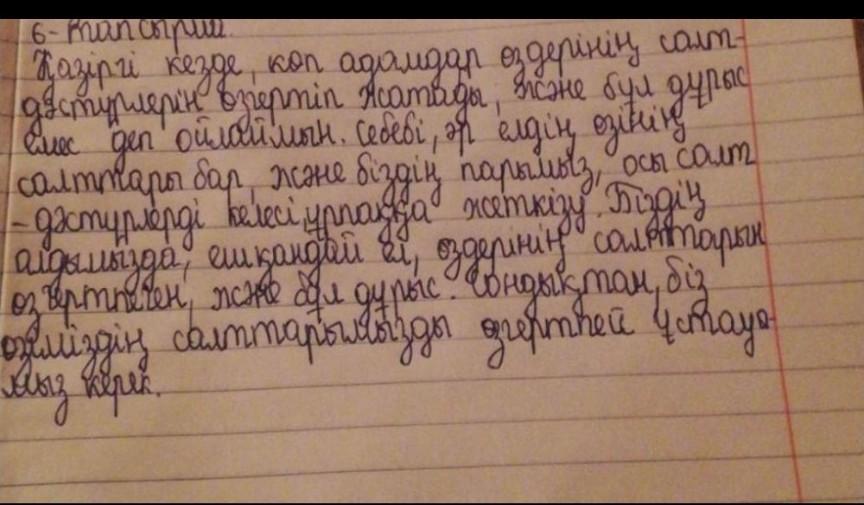 6-тапсырма.
Қазіргі кезде, көп адамдар өздерінің салт-
дәстүрлерін өзертіп жатады, және бұл дұрыс
емес деп ойлаймын. Себебі, әр елдің өзінің
салттары бар, және біздің парымыз, осы салт
-дәстүрлерді келесі ұрпаққа жеткізу. Біздің
алдымызда, ешқандай ел, өздерінің салттарын
өзгертпеген, және бұл дұрыс. Сондықтан, біз
өзіміздің салттарымызды өзгертпей ұстауы-
мыз керек.